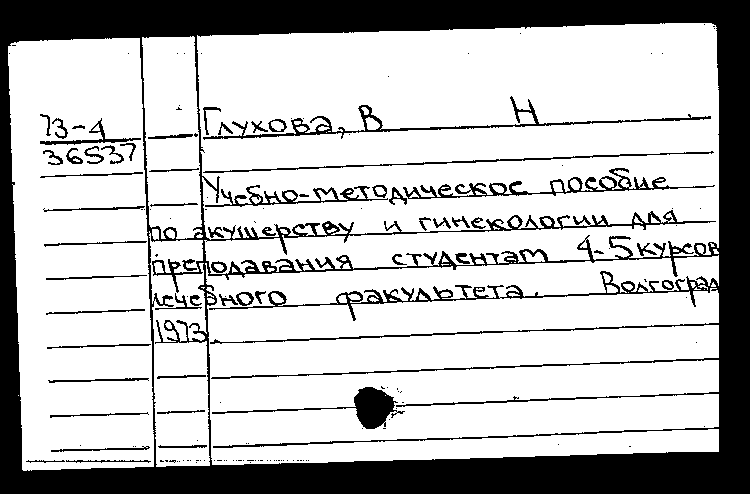 73-4
36537
Глухова, В Н
Учебно-методическое пособие
по акушерству и гинекологии для
преподавания студентам 4-5 курсов
лечебного факультета. Волгоград
1973.